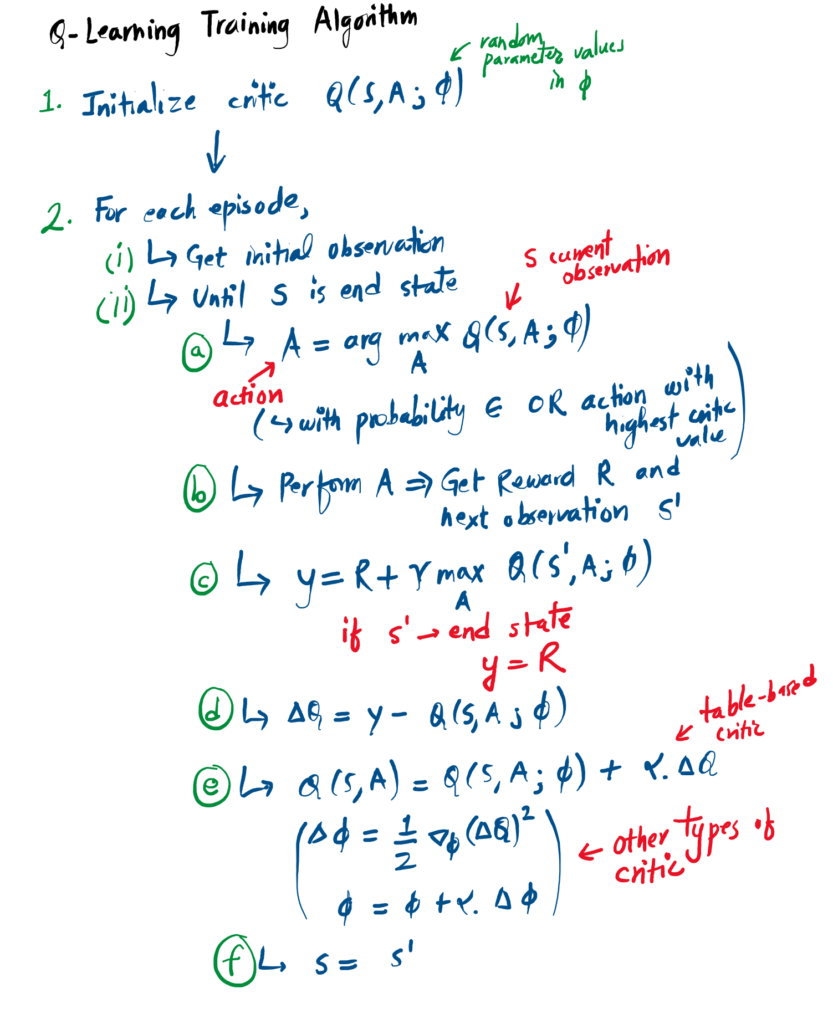 Q-Learning Training Algorithm
random
parameter values
in ϕ
1. Initialize critic Q(S,A;ϕ)
2. For each episode,
(i) ↳ Get initial observation
(ii) ↳ Until S is end state
S current
observation
(a) ↳ A = arg max Q(S,A;ϕ)
A
action
(↳ with probability ∈ OR action with
highest critic
value)
(b) ↳ Perform A ⇒ Get Reward R and
next observation S'
(c) ↳ y = R + γ max Q(S',A;ϕ)
A
if S' → end state
y = R
(d) ↳ ΔQ = y - Q(S,A;ϕ)
table-based
critic
(e) ↳ Q(S,A) = Q(S,A;ϕ) + α.ΔQ
(Δϕ = 1/2 ∇ϕ(ΔQ)²
ϕ = ϕ + α.Δϕ)
← other types of
critic
(f) ↳ S = S'